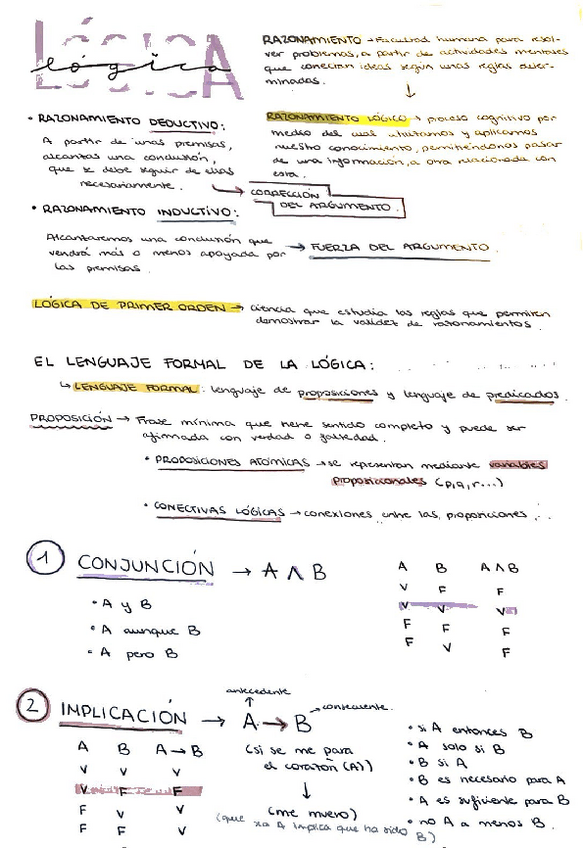 LÓGICA
lógica
RAZONAMIENTO → Facultad humana para resol-
ver problemas, a partir de actividades mentales
que conectan ideas según unas reglas deter-
minadas.
↓
RAZONAMIENTO LÓGICO → proceso cognitivo por
medio del cual utilizamos y aplicamos
nuestro conocimiento, permitiéndonos pasar
de una información, a otra relacionada con
esta.
• RAZONAMIENTO DEDUCTIVO:
A partir de unas premisas,
alcanzas una conclusión,
que se debe seguir de ellas
necesariamente.
→ CORRECCIÓN
DEL ARGUMENTO.
• RAZONAMIENTO INDUCTIVO:
Alcanzaremos una conclusión que
vendrá más o menos apoyada por
las premisas.
→ FUERZA DEL ARGUMENTO.
LÓGICA DE PRIMER ORDEN → ciencia que estudia las reglas que permiten
demostrar la validez de razonamientos.
EL LENGUAJE FORMAL DE LA LÓGICA:
↳ LENGUAJE FORMAL: lenguaje de proposiciones y lenguaje de predicados.
PROPOSICIÓN → Frase mínima que tiene sentido completo y puede ser
afirmada con verdad o falsedad.
• PROPOSICIONES ATÓMICAS → se representan mediante variables
proposicionales (p,q,r...)
• CONECTIVAS LÓGICAS → conexiones entre las proposiciones.
1 CONJUNCIÓN → A ∧ B
• A y B
• A aunque B
• A pero B
A B A∧B
V F F
V V V
F F F
F V F
2 IMPLICACIÓN → A → B
antecedente
consecuente.
A B A→B
V V V
V F F
F V V
F F V
(si se me para
el corazón (A))
↓
(me muero)
(que no A implica que ha sido B)
• si A entonces B
• A solo si B
• B si A
• B es necesario para A
• A es suficiente para B
• no A a menos B.